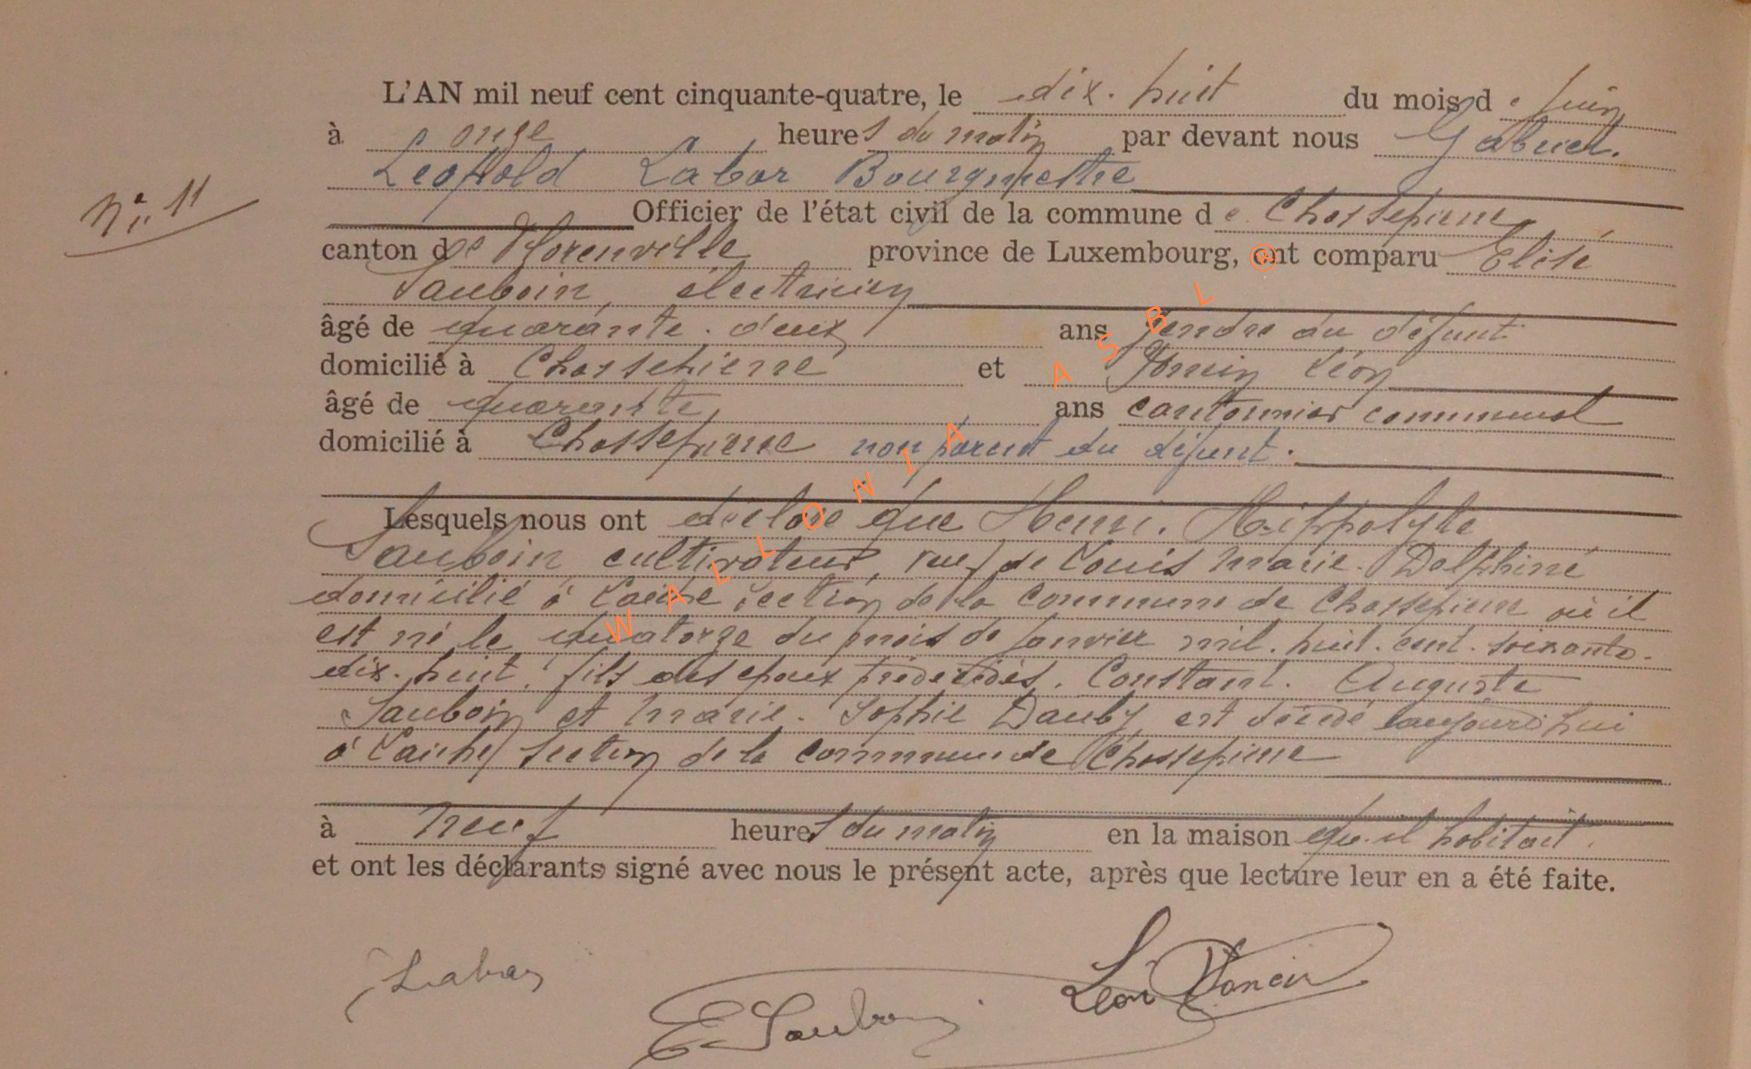 L'AN mil neuf cent cinquante-quatre, le dix-huit du mois de Juin
à onze heures du matin par devant nous Gabriel.
N° 11
Léopold Labar Bourgmestre
Officier de l'état civil de la commune de Chassepierre
canton de Florenville province de Luxembourg, ont comparu Elisé
Sauboin, électricien
âgé de quarante-deux ans gendre du défunt
domicilié à Chassepierre et Léon
âgé de quarante ans cantonnier communal
domicilié à Chassepierre non parent du défunt.
Lesquels nous ont déclaré que Henri. Hippolyte
Sauboin cultivateur, veuf de Louis Marie. Delphine
domicilié à Laiche section de la commune de Chassepierre où il
est né le quatorze du mois de Janvier mil. huit. cent. soixante-
dix-huit, fils des époux prédécédés. Constant. Auguste
Sauboin et Marie. Sophie Dauby est décédé aujourd'hui
à Laiche section de la commune de Chassepierre
à neuf heures du matin en la maison qu'il habitait.
et ont les déclarants signé avec nous le présent acte, après que lecture leur en a été faite.
Labar
E Sauboin
Léon
WALLONIA ASBL ©